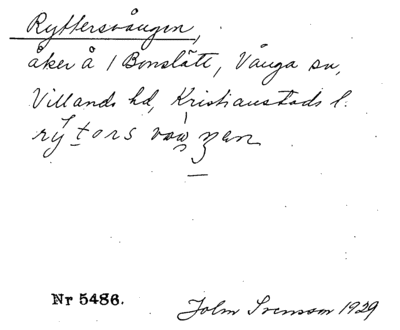 Ryttersvången,
åker å 1 Bonslätt, Vånga sn,
Villands hd, Kristianstads l.
Nr 5486. John Svensson 1929